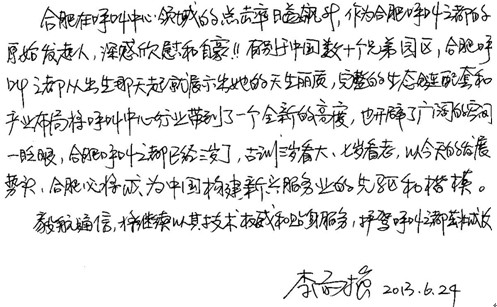 合肥在呼叫中心领域的点击率日益飙升，作为合肥呼叫之都的
原始发起人，深感欣慰和自豪!! 有别于中国数十个兄弟园区，合肥呼
叫之都从出生那天起就展示出她的天生丽质，完整的生态链配套和
产业布局将呼叫中心行业带到了一个全新的高度，也开辟了广阔的空间
一眨眼，合肥呼叫之都已经三岁了，古训三岁看大、七岁看老，以今天的发展
势头，合肥必将成为中国构建新兴服务业的先驱和楷模。
毅航通信，将继续以其技术权威和贴身服务，护驾呼叫之都茁壮成长
李 2013.6.24